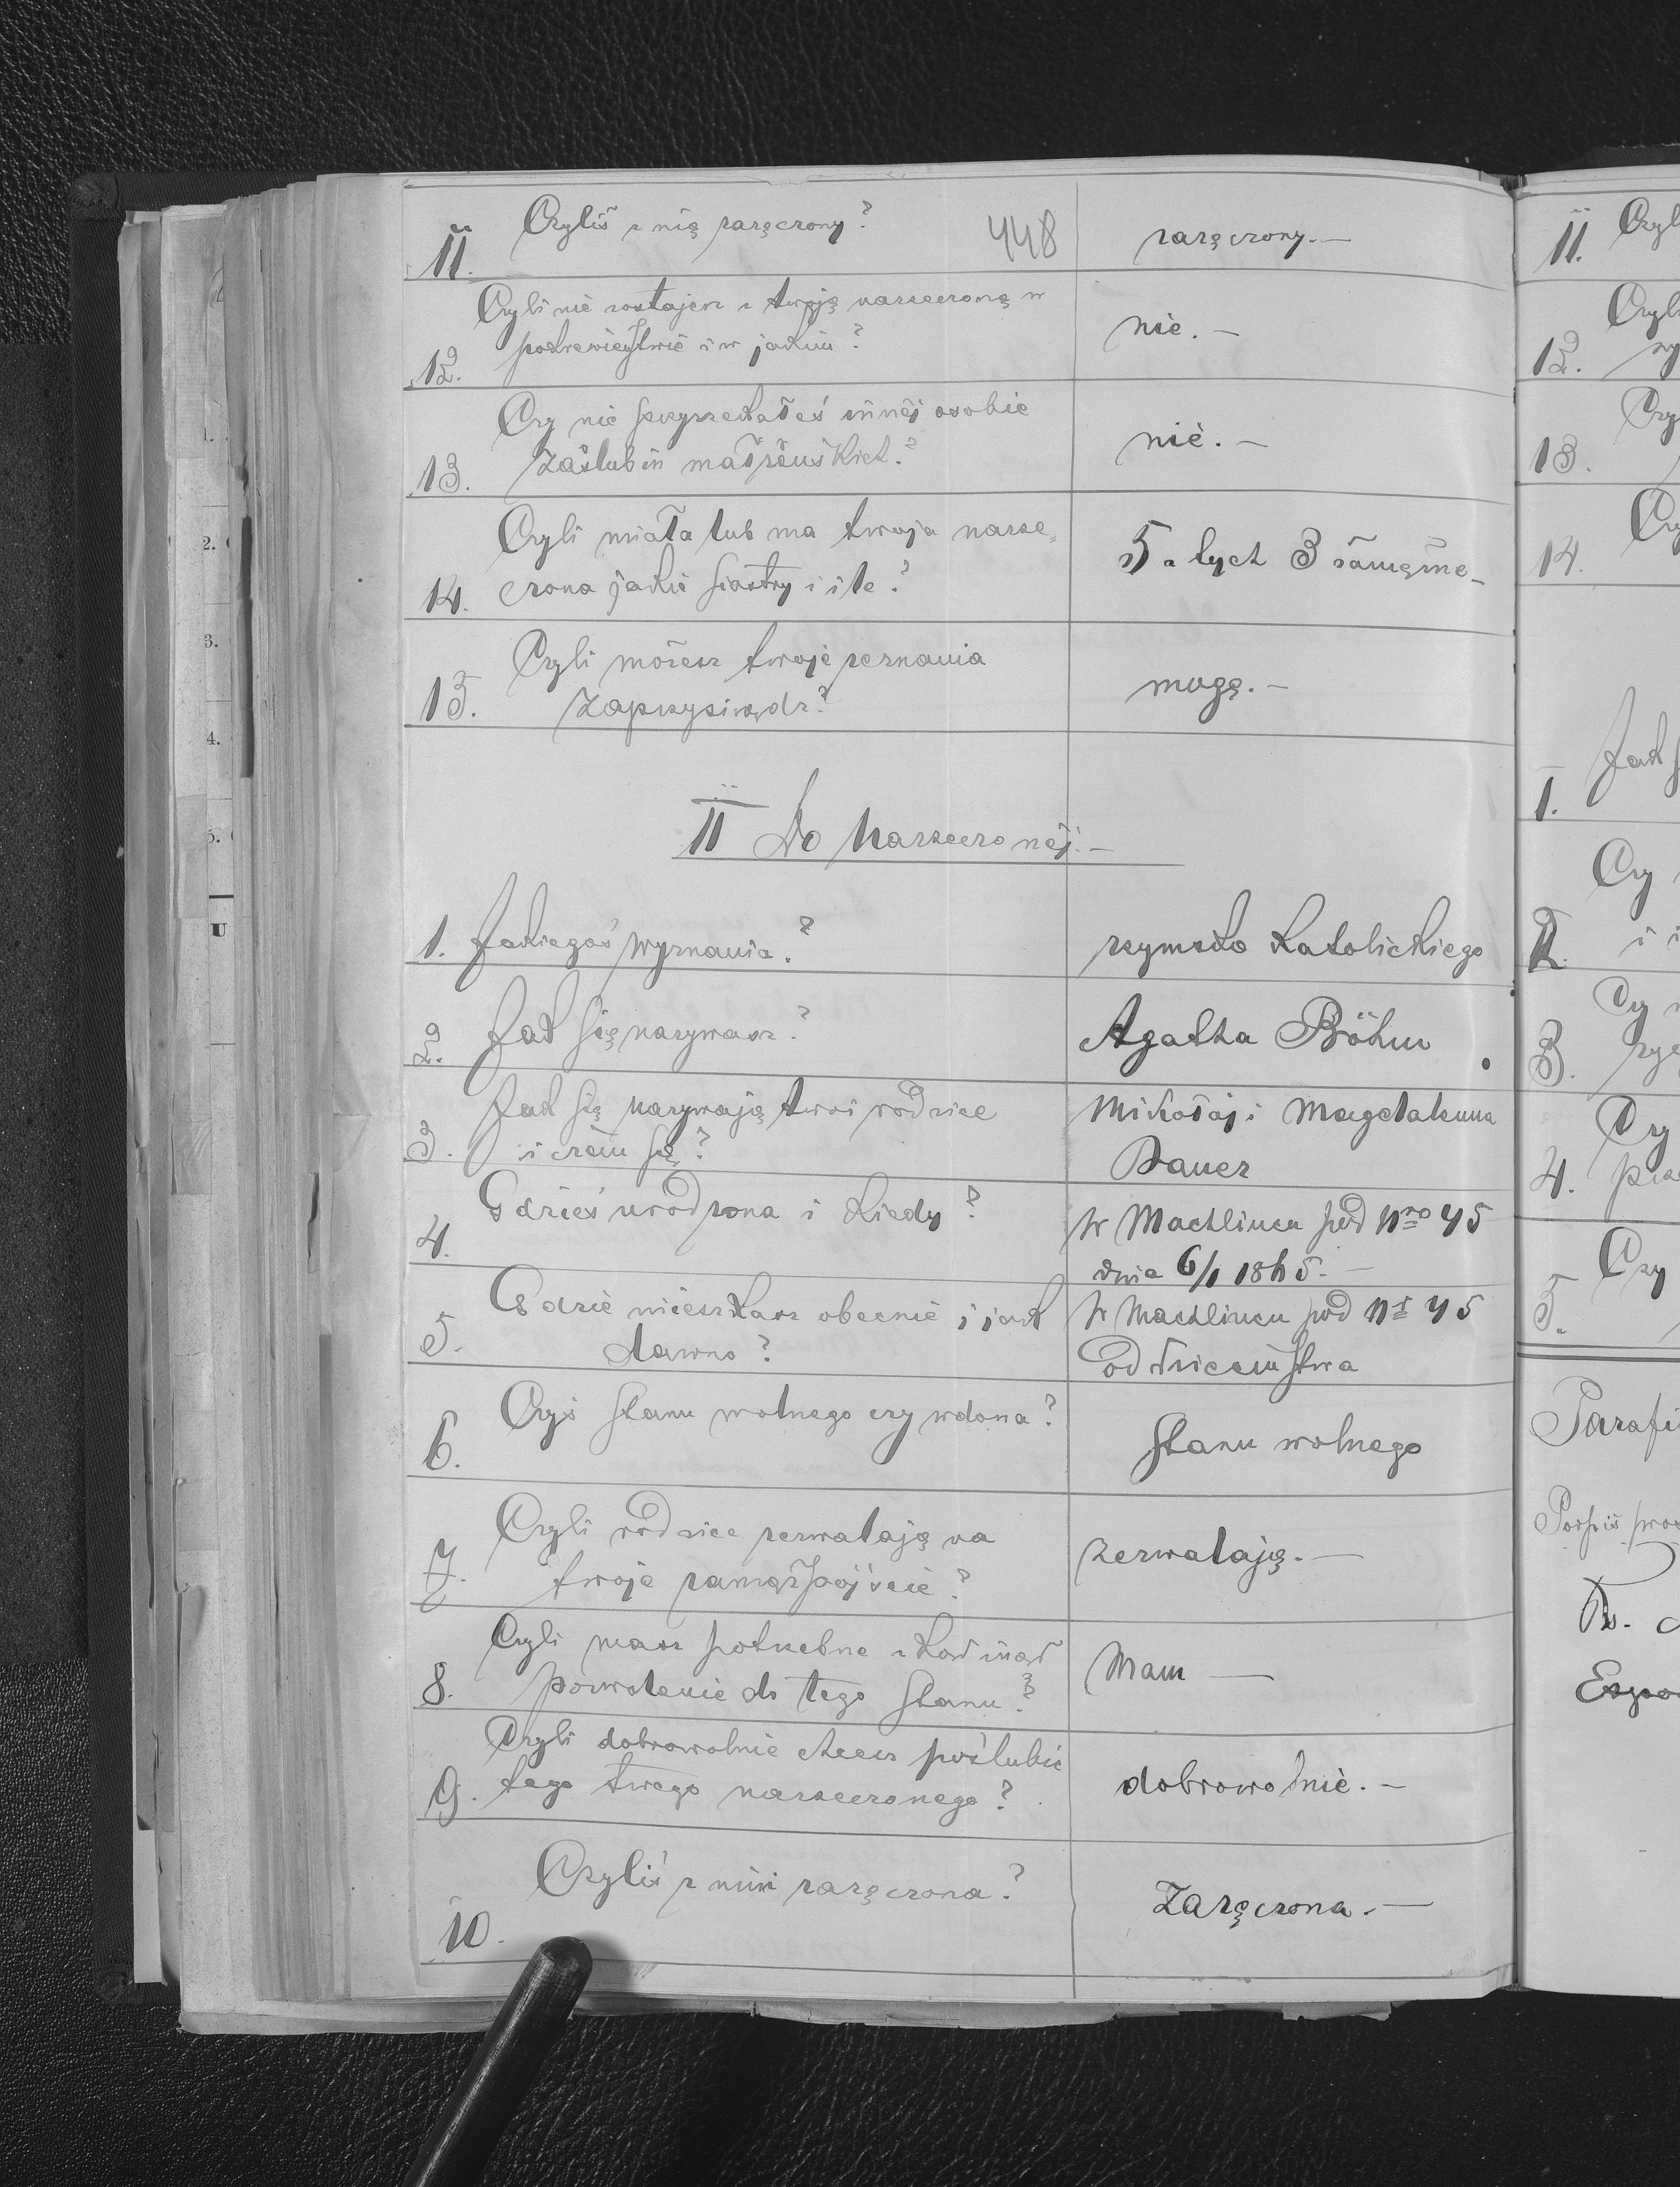 448
11. Czyliś z nią zaręczony?
zaręczony. —
Czyli nie zostajesz z twoją narzeczoną w
12. pokrewieństwie i w jakim?
nie. —
Czy nie przyrzekałeś innéj osobie
13. zaślubin małżeńskich?
nie. —
Czyli miała lub ma twoja narze„
14. czona jakie siostry i ile?
5 z tych 3 zamężne —
Czyli możesz twoje zeznania
15. zaprzysiądz?
mogę. —
II Do Narzeczonéj. —
1. Jakiegoś wyznania?
rzymsko katolickiego
2. Jak się nazywasz?
Agatha Böhm
Jak się nazywają twoi rodzice
3. i czém są?
Mikołaj i Magdalena
Bauer
4. Gdzieś urodzona i kiedy?
w Machlińcu pod Nro 45
dnia 6/1 1865. —
Gdzie mieszkasz obecnie i jak
5. dawno?
w Machlińcu pod Nr 45
od dzieciństwa
6. Czyś stanu wolnego czy wdowa?
stanu wolnego
Czyli rodzice zezwalają na
7. twoje zamążpójście?
zezwalają. —
Czyli masz potrzebne zkądinąd
8. pozwolenie do tego stanu?
Mam —
Czyli dobrowolnie chcesz poślubić
9. tego twego narzeczonego?
dobrowolnie. —
10. Czyliś z nim zaręczona?
Zaręczona. —
11.
12.
13.
14.
1. Jak
Czy
2.
3.
Czy
4.
Czy
5.